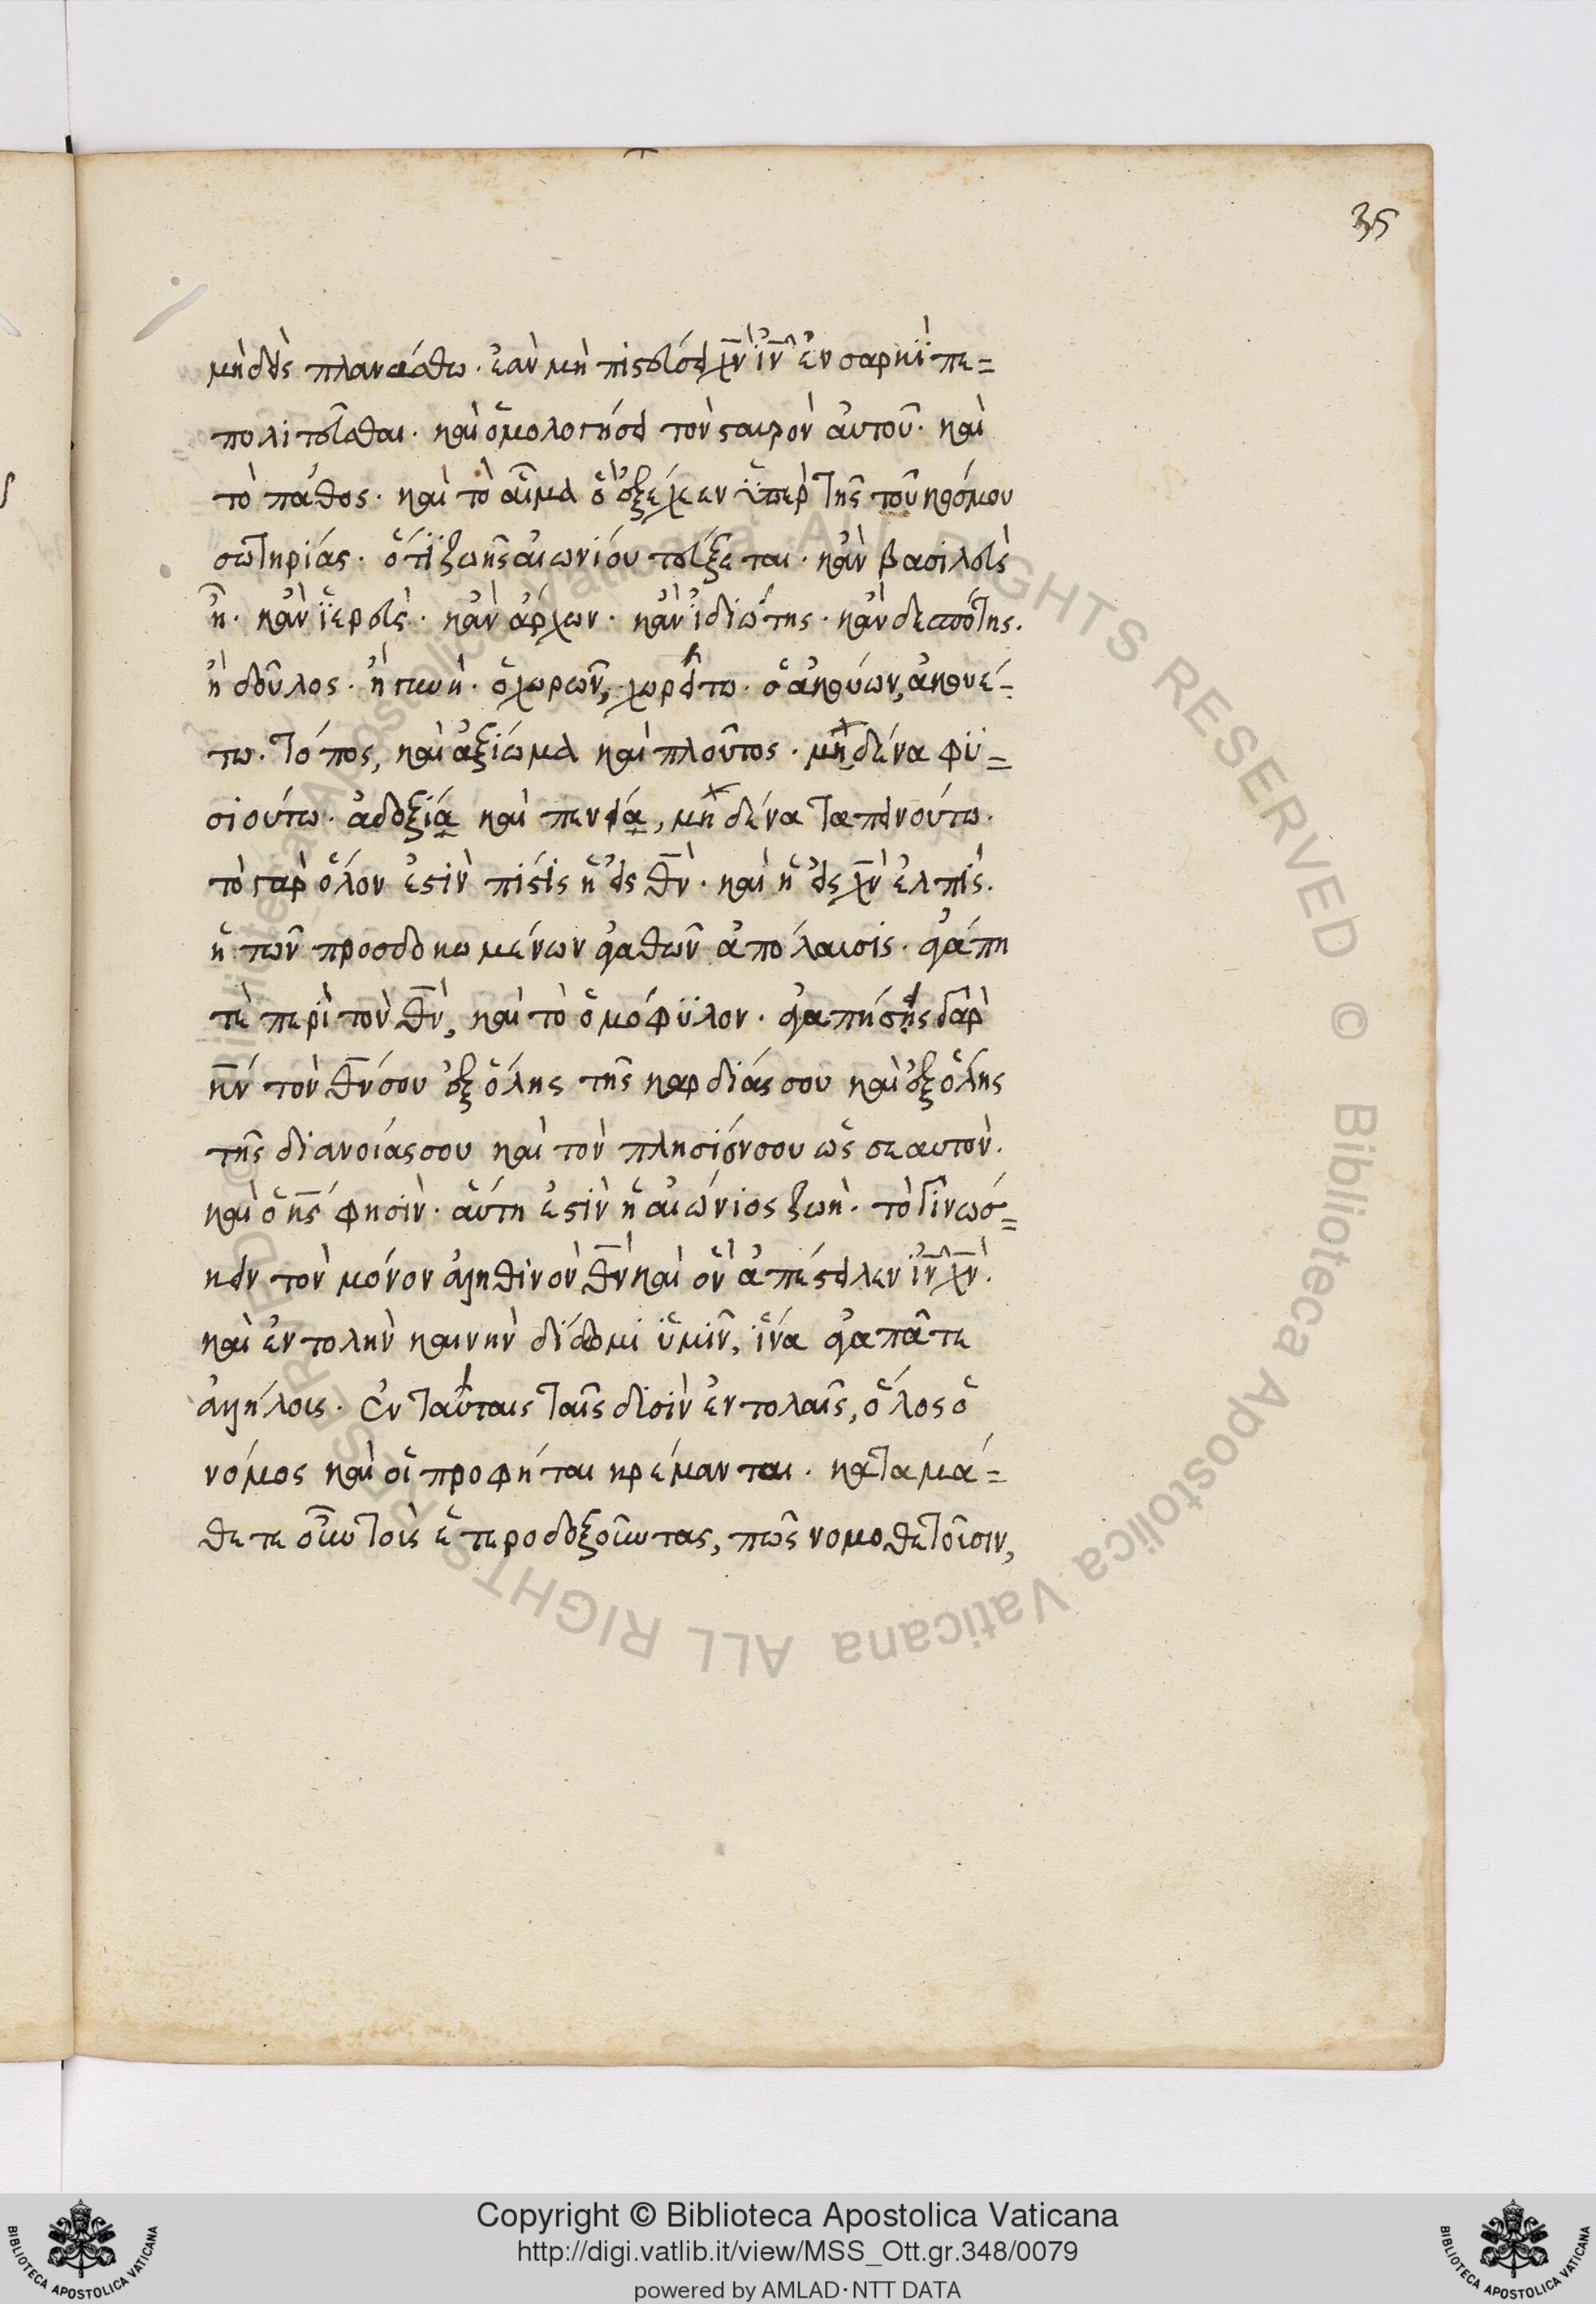 35
μηδεὶς πλανάσθω. ἐὰν μὴ πιστεύσει χν ιν ἐν σαρκὶ πε=
πολιτεῦσθαι. καὶ ὁμολογήσει τὸν σταυρὸν αὐτοῦ. καὶ
τὸ πάθος. καὶ τὸ αἷμα ὃ ἐξέχεεν ὑπὲρ τῆς τοῦ κόσμου
σωτηρίας. ὅτι ζωῆς αἰωνίου τεύξεται. κἂν βασιλεὺς
ῇ. κἂν ἱερεὺς. κἂν ἄρχων. κἂν ἰδιώτης. κἂν δεσπότης.
ἢ δοῦλος. ἢ γυνὴ. ὁ χωρῶν, χωρείτω. ὁ ἀκούων, ἀκουέ=
τω. τόπος, καὶ ἀξίωμα καὶ πλοῦτος. μηδένα φυ=
σιούτω. ἀδοξία καὶ πενία, μηδένα ταπεινούτω.
τὸ γὰρ ὅλον ἐστὶν πίστις ἡ εἰς θν. καὶ ἡ εἰς χν ἐλπὶς.
ἡ τῶν προσδοκωμένων ἀγαθῶν ἀπόλαυσις. ἀγάπη
τε περὶ τὸν θν, καὶ τὸ ὁμόφυλον. ἀγαπήσεις γὰρ
κν τὸν θν σου ἐξ ὅλης τῆς καρδίας σου καὶ ἐξ ὅλης
τῆς διανοίας σου καὶ τὸν πλησίον σου ὡς σεαυτὸν.
καὶ ὁ κς φησὶν. αὕτη ἐστὶν ἡ αἰώνιος ζωὴ. τὸ γινώσ=
κειν τὸν μόνον ἀληθινὸν θν καὶ ὃν ἀπέστειλεν ιν χν.
καὶ ἐντολὴν καινὴν δίδωμι ὑμῖν, ἵνα ἀγαπᾶτε
ἀλλήλους. ἐν ταύταις ταῖς δυσὶν ἐντολαῖς, ὅλος ὁ
νόμος καὶ οἱ προφῆται κρέμανται. καταμά=
θετε οὖν τοὺς ἑτεροδοξοῦντας, πῶς νομοθετοῦσιν,
Biblioteca Apostolica Vaticana ALL RIGHTS RESERVED © Biblioteca Apostolica Vaticana ALL RIGHTS RESERVED ©
Copyright © Biblioteca Apostolica Vaticana
http://digi.vatlib.it/view/MSS_Ott.gr.348/0079
powered by AMLAD·NTT DATA
BIBLIOTECA APOSTOLICA VATICANA
BIBLIOTECA APOSTOLICA VATICANA